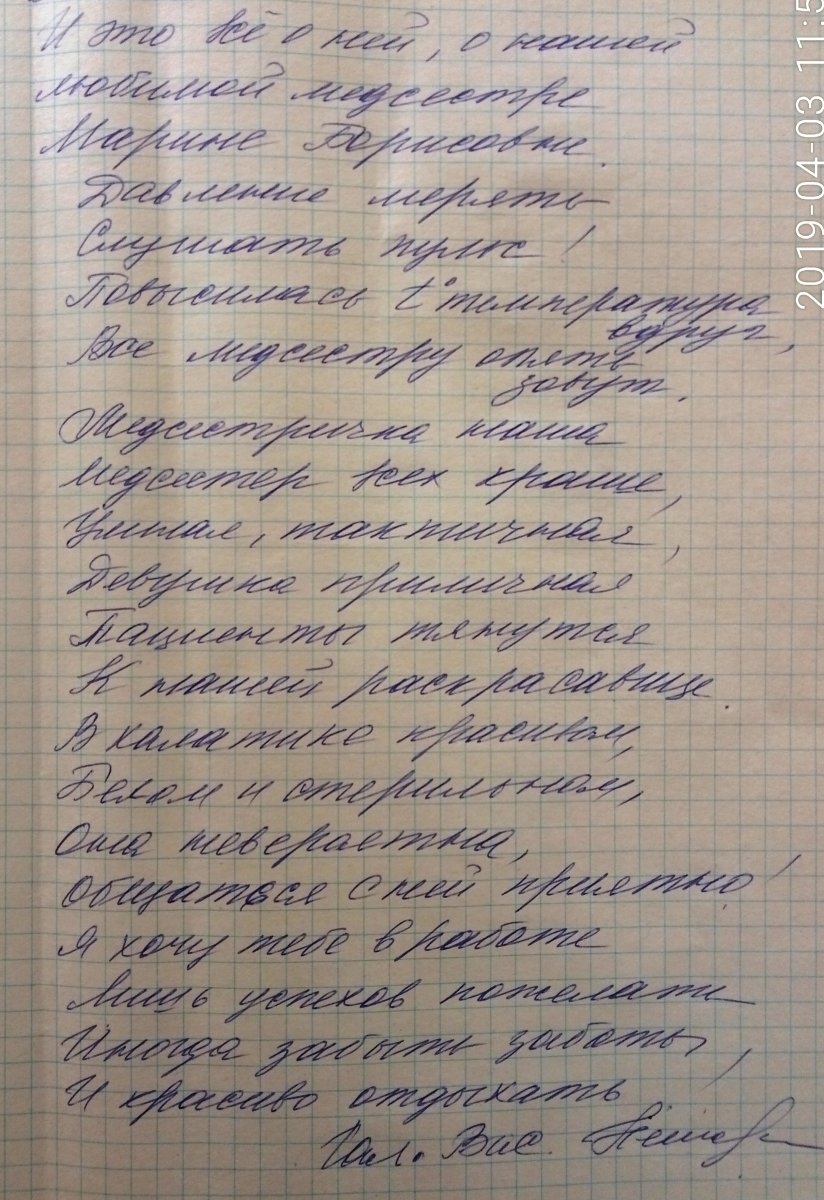 И это всё о ней, о нашей
любимой медсестре
Марине Борисовне.
Давление мерять
Слушать пульс!
Повысилась t° температура
вдруг,
Все медсестру опять
зовут.
Медсестричка наша
Медсестер всех краше,
Умная, тактичная,
Девушка приличная
Пациенты тянутся
К нашей раскрасавице.
В халатике красивом,
Белом и стерильном,
Она невероятна,
Общаться с ней приятно!
Я хочу тебе в работе
Лишь успехов пожелать
Иногда забыть заботы,
И красиво отдыхать!
Гал. Вас.
2019-04-03 11:5